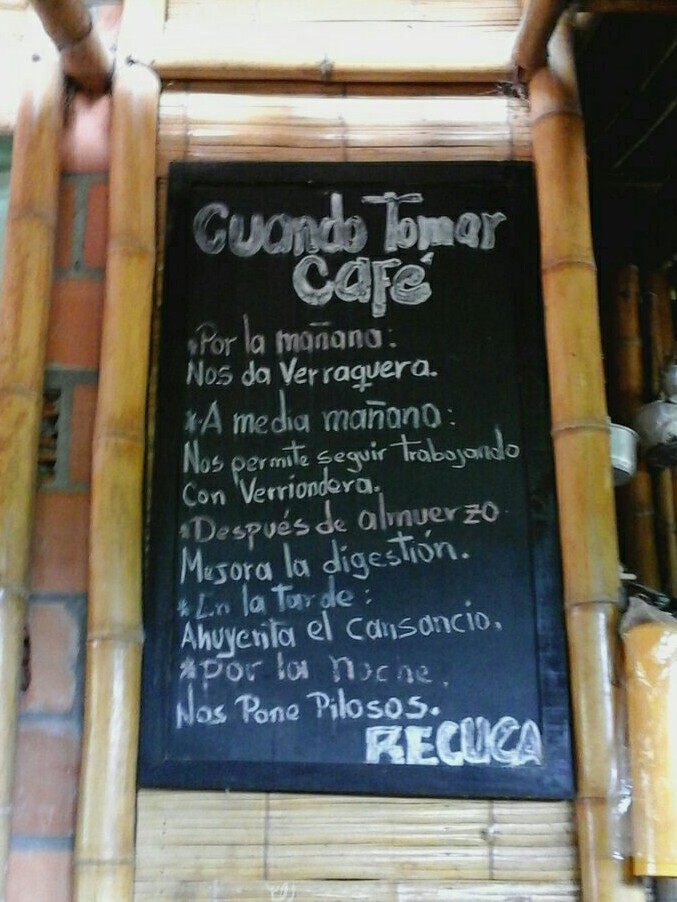 Cuando Tomar
Café
*Por la mañana:
Nos da Verraquera.
*A media mañana:
Nos permite seguir trabajando
Con Verriondera.
*Después de almuerzo
Mejora la digestión.
*En la tarde:
Ahuyenta el cansancio.
*por la noche.
Nos Pone Pilosos.
RECUCA